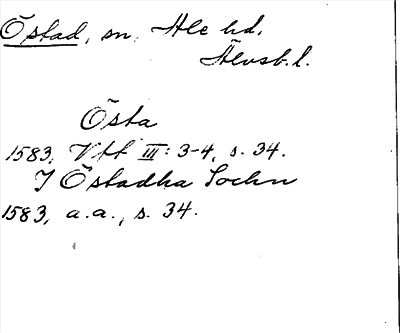 Östad, sn, Ale hd,
Älvsb. l.
Östa
1583, Vtt III: 3-4, s. 34.
J Östadha Sochn
1583, a.a., s. 34.